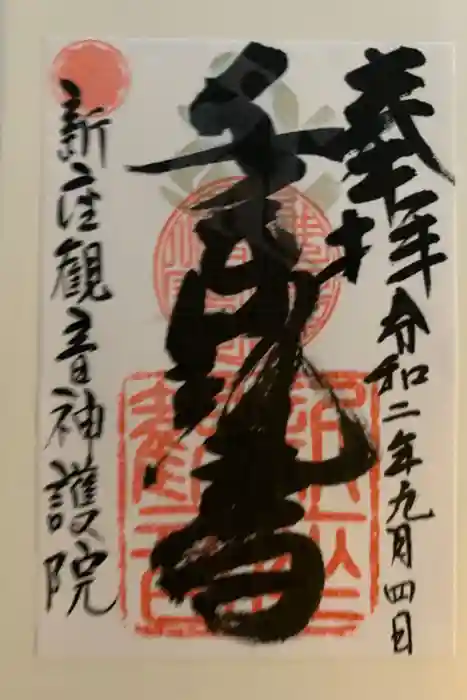 奉拝
令和二年九月四日
千手観音
新座観音神護院